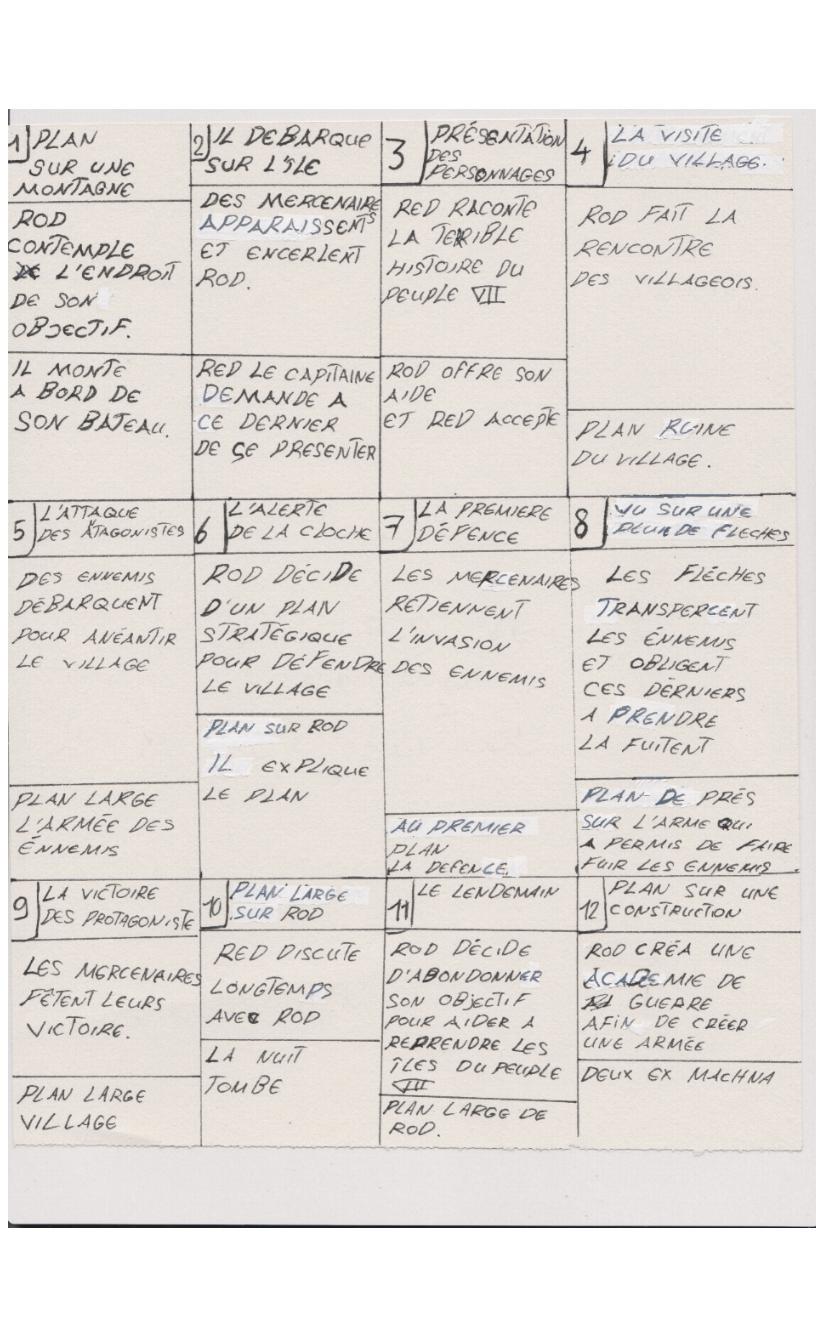 1 PLAN
SUR UNE
MONTAGNE
ROD
CONTEMPLE
L'ENDROIT
DE SON
OBJECTIF.
IL MONTE
A BORD DE
SON BATEAU.
2 IL DEBARQUE
SUR L'ÎLE
DES MERCENAIRES
APPARAISSENT
ET ENCERLENT
ROD.
RED LE CAPITAINE
DEMANDE A
CE DERNIER
DE SE PRESENTER
3 PRÉSENTATION
DES
PERSONNAGES
RED RACONTE
LA TERIBLE
HISTOIRE DU
PEUPLE VII
ROD OFFRE SON
AIDE
ET RED ACCEPTE
4 LA VISITE
DU VILLAGE.
ROD FAIT LA
RENCONTRE
DES VILLAGEOIS.
PLAN RUINE
DU VILLAGE.
5 L'ATTAQUE
DES ATAGONISTES
DES ENNEMIS
DÉBARQUENT
POUR ANÉANTIR
LE VILLAGE
PLAN LARGE
L'ARMÉE DES
ÉNNEMIS
6 L'ALERTE
DE LA CLOCHE
ROD DÉCIDE
D'UN PLAN
STRATÉGIQUE
POUR DÉFENDRE
LE VILLAGE
PLAN SUR ROD
IL EXPLIQUE
LE PLAN
7 LA PREMIERE
DÉFENCE
LES MERCENAIRES
RETIENNENT
L'INVASION
DES ENNEMIS
AU PREMIER
PLAN
LA DEFENCE.
8 VU SUR UNE
PLUIE DE FLECHES
LES FLÉCHES
TRANSPERCENT
LES ÉNNEMIS
ET OBLIGENT
CES DÉRNIERS
A PRENDRE
LA FUITENT
PLAN DE PRÉS
SUR L'ARME QUI
A PERMIS DE FAIRE
FUIR LES ENNEMIS
9 LA VICTOIRE
DES PROTAGONISTE
LES MERCENAIRES
FÊTENT LEURS
VICTOIRE.
PLAN LARGE
VILLAGE
10 PLAN LARGE
SUR ROD
RED DISCUTE
LONGTEMPS
AVEC ROD
LA NUIT
TOMBE
11 LE LENDEMAIN
ROD DÉCIDE
D'ABONDONNER
SON OBJECTIF
POUR AIDER A
REPRENDRE LES
ÎLES DU PEUPLE
VII
PLAN LARGE DE
ROD.
12 PLAN SUR UNE
CONSTRUCTION
ROD CRÉA UNE
ACADEMIE DE
GUERRE
AFIN DE CRÉER
UNE ARMÉE
DEUX EX MACHNA